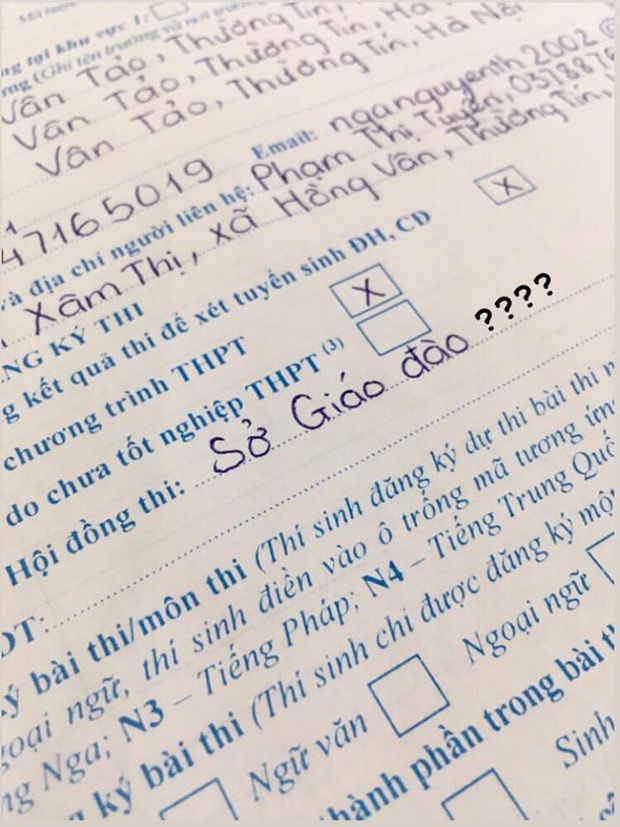 khu vực 1:
(Ghi tên trường và nơi trường
Vân Tảo, Thường Tín,
Vân Tảo, Thường Tín, Hà
Vân Tảo, Thường Tín, Hà Nội
47165019 Email: nganguyenth2002@
và địa chỉ người liên hệ: Phạm Thị Tuyển, 0378876
Xâm Thị, xã Hồng Vân, Thường Tín,
NG KÝ THI
g kết quả thi để xét tuyển sinh ĐH, CĐ X
chương trình THPT X
do chưa tốt nghiệp THPT (3)
Hội đồng thi: Sở Giáo đào ????
ĐT:
ý bài thi/môn thi (Thí sinh đăng ký dự thi bài thi n
goại ngữ, thí sinh điền vào ô trống mã tương ứn
ng Nga; N3 – Tiếng Pháp; N4 – Tiếng Trung Quố
ký bài thi (Thí sinh chỉ được đăng ký mộ
Ngữ văn Ngoại ngữ
thành phần trong bài t
Sinh